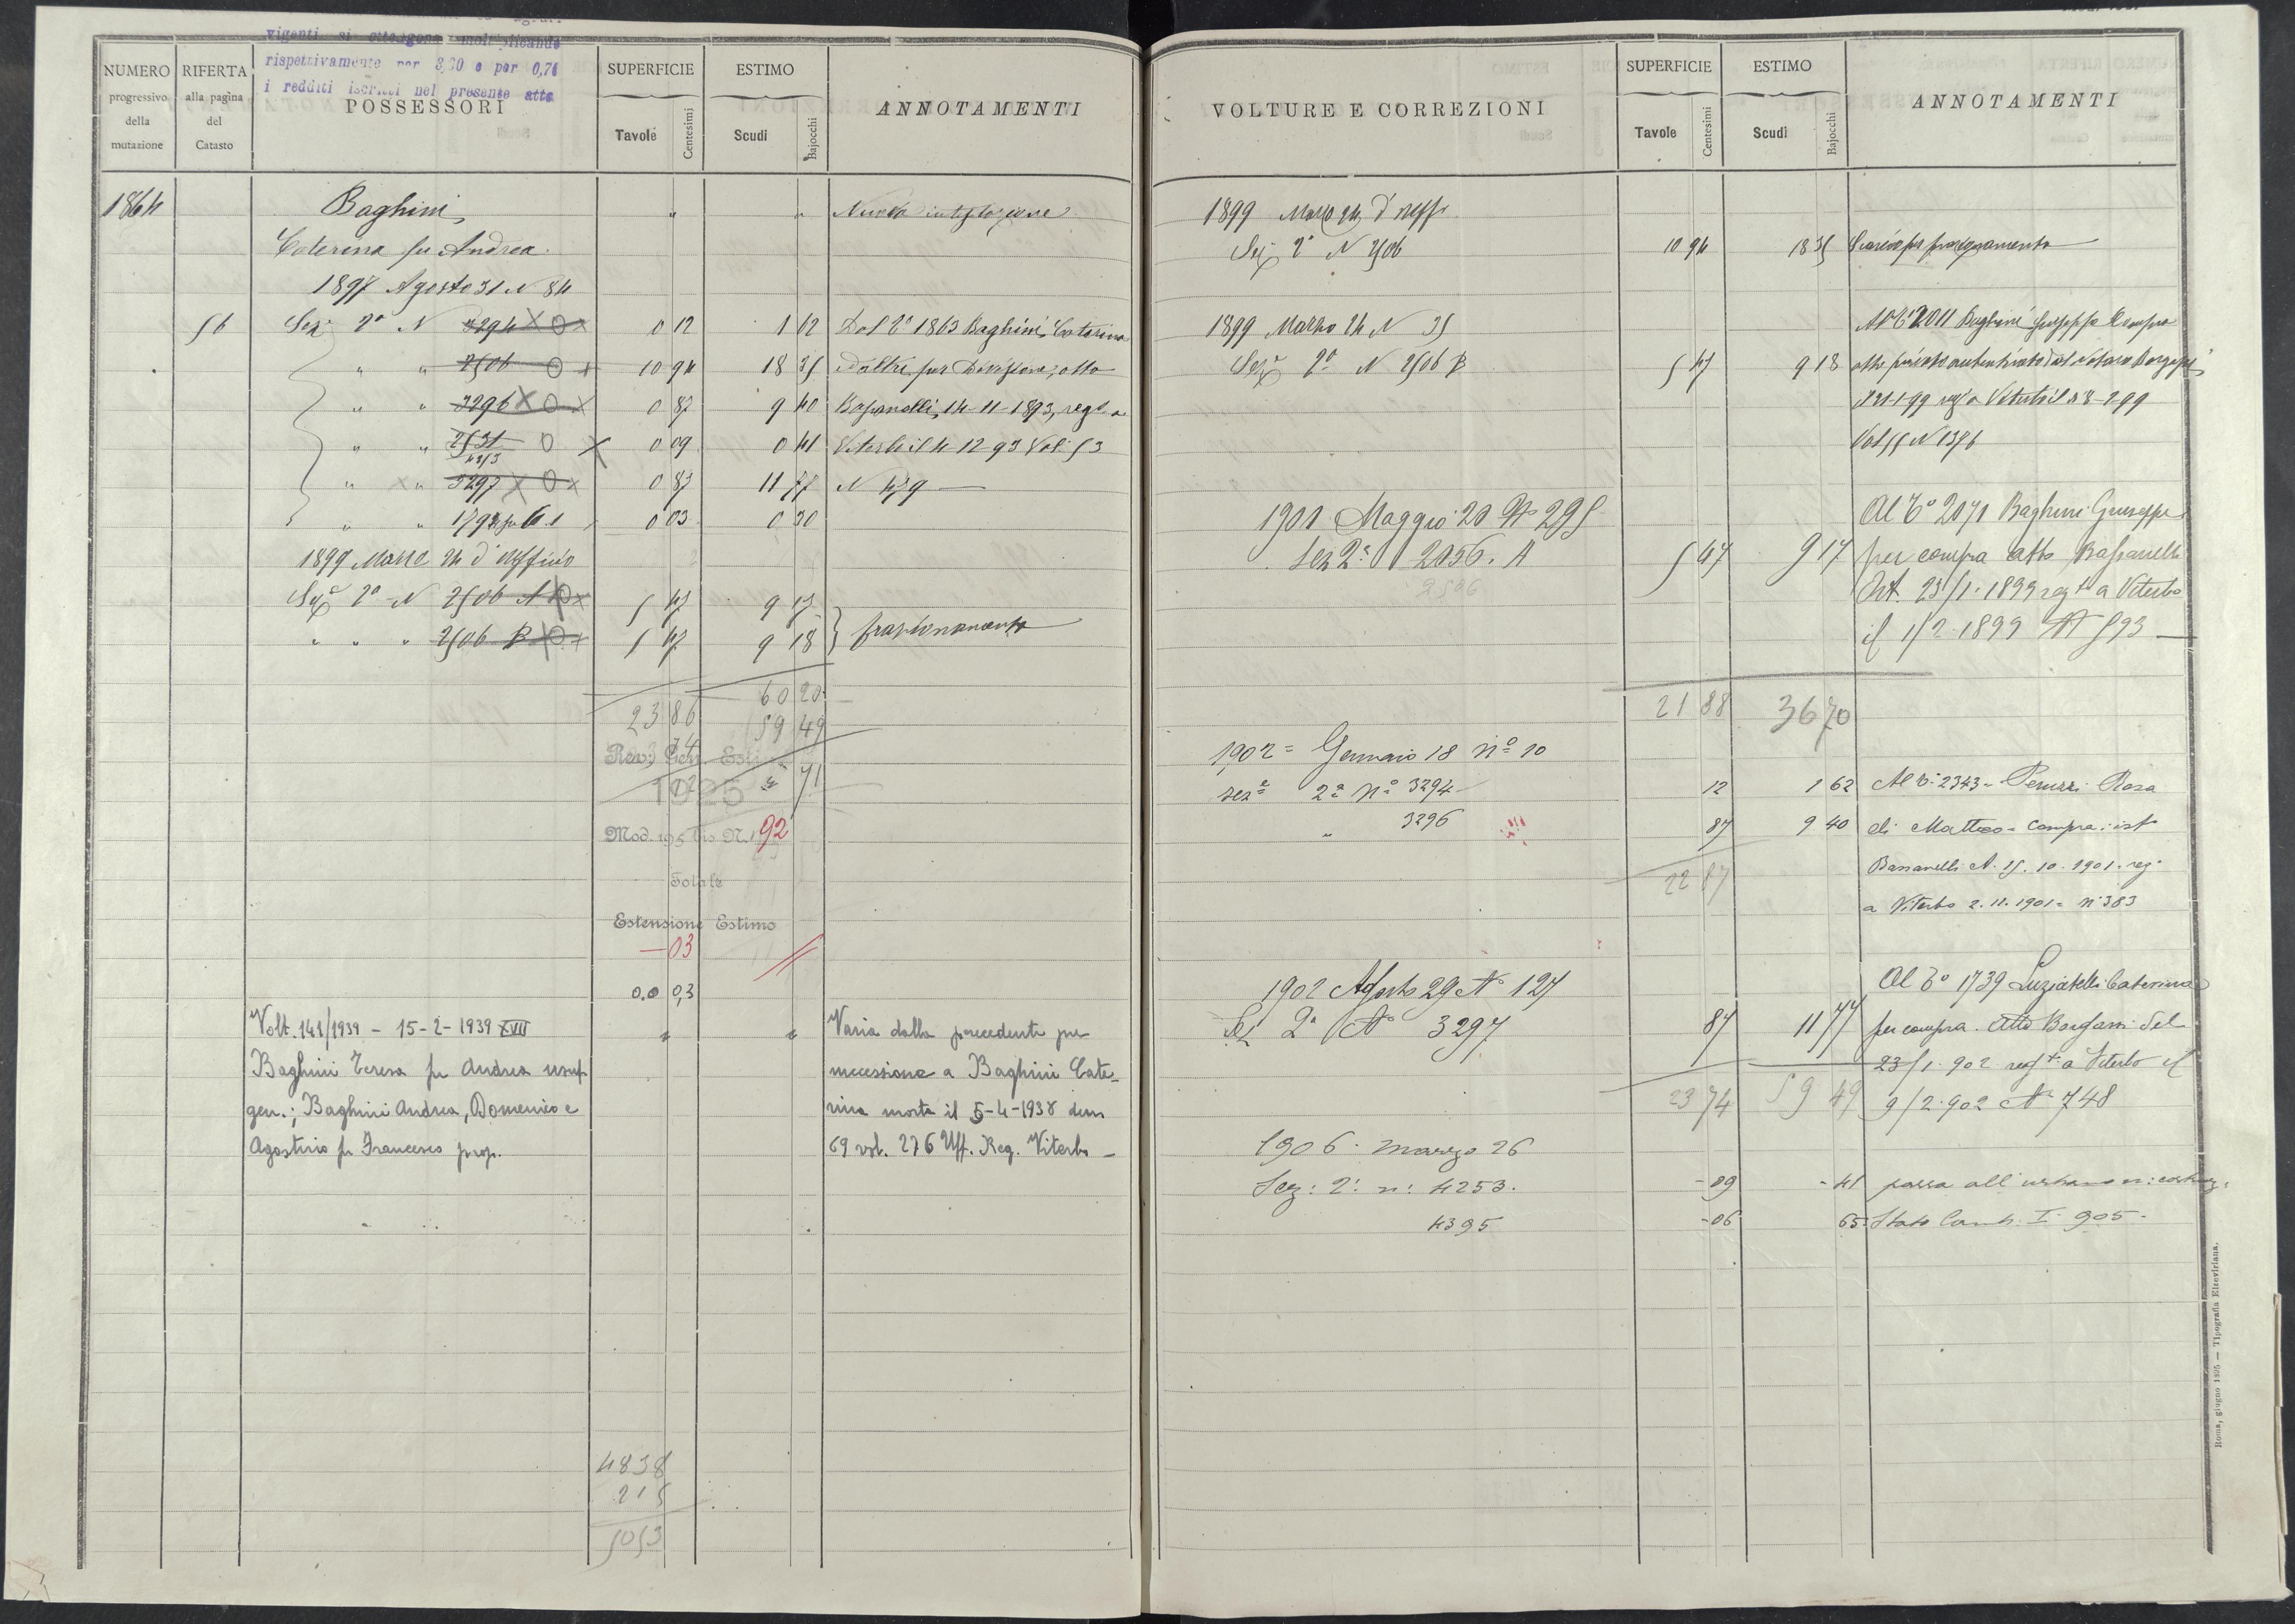 vigenti si ottengono moltiplicando
rispettivamente per 3,60 e per 0,71
i redditi iscritti nel presente atto
NUMERO progressivo della mutazione
RIFERTA alla pagina del Catasto
POSSESSORI
SUPERFICIE
Tavole Centesimi
ESTIMO
Scudi Bajocchi
ANNOTAMENTI
1864 Baghini, " " Nuova intestazione
Caterina fu Andrea
1897 Agosto 31 N 84
56 Sez. 2a N 3294 0 12 1 62 Dal To 1863 Baghini Caterina
" " 2506 10 94 18 35 ed altri per Divisione, atto
" " 3296 0 87 9 40 Bassanelli, 14-11-1893, regto a
" " 2531/4253 0 09 0 41 Viterbo il 4-12-93 Vol. 53
" " 3297 0 87 11 77 N
" " 0 03 0 30
1899 Marzo 24 d'ufficio
Seza 2a N 2506 A 5 47 9 17
" " " 2506 B 5 47 9 18 frazionamento
60 20
23 86 59 49
Rev. Gen. Estimi
1925 71
Mod. 195 bis N. 192
Totale
Estensione Estimo
- 03
0.0 0,3
Volt. 141/1939 - 15-2-1939 XVII " " Varia dalla precedente per
Baghini Teresa fu Andrea usuf. successione a Baghini Cate-
gen.; Baghini Andrea, Domenico e rina morta il 5-4-1938 den
Agostino fu Francesco prop. 69 vol. 276 Uff. Reg. Viterbo -
4838
215
5053
VOLTURE E CORREZIONI
SUPERFICIE
Tavole Centesimi
ESTIMO
Scudi Bajocchi
ANNOTAMENTI
1899 Marzo 24 d'uffo
Seza 2a N 2506 10 94 18 35 Scarico per frazionamento
1899 Marzo 24 N 35 Al To 2011 Baghini Giuseppe Compra
Seza 2a N 2506 B 5 47 9 18 atto privato autenticato dal Notaro
Viterbo il
Vol 55 N
1901 Maggio 20 No 295 Al To 2071 Baghini Giuseppe
Sez 2a 2056. A 5 47 9 17 per compra atto Bassanelli
2506 Ant. 23/1.1899 regto a Viterbo
il 1/2.1899 No 593
21 88 36 70
1902 = Gennaio 18 No 10
seza 2a No 3294 12 1 62 Al To 2343 = Peruzzi Rosa
" 3296 87 9 40 di Matteo = Compra: ist
22 87 Bassanelli A. 15.10.1901. reg.
a Viterbo 2.11.1901 = No 383
1902 Agosto 29 No 127 Al To 1739 Luziatelli Caterina
Sez 2a No 3297 87 11 77 per compra. Atto Borgassi del
23/1.902 regto a Viterbo il
23 74 59 49 9/2.902 No 748
1906. marzo 26
Sez: 2: n: 4253. -09 -41 passa all'urbano n:
4395 -06 65 Stato Camb. I 905.
Roma, giugno 1895 — Tipografia Elzeviriana.